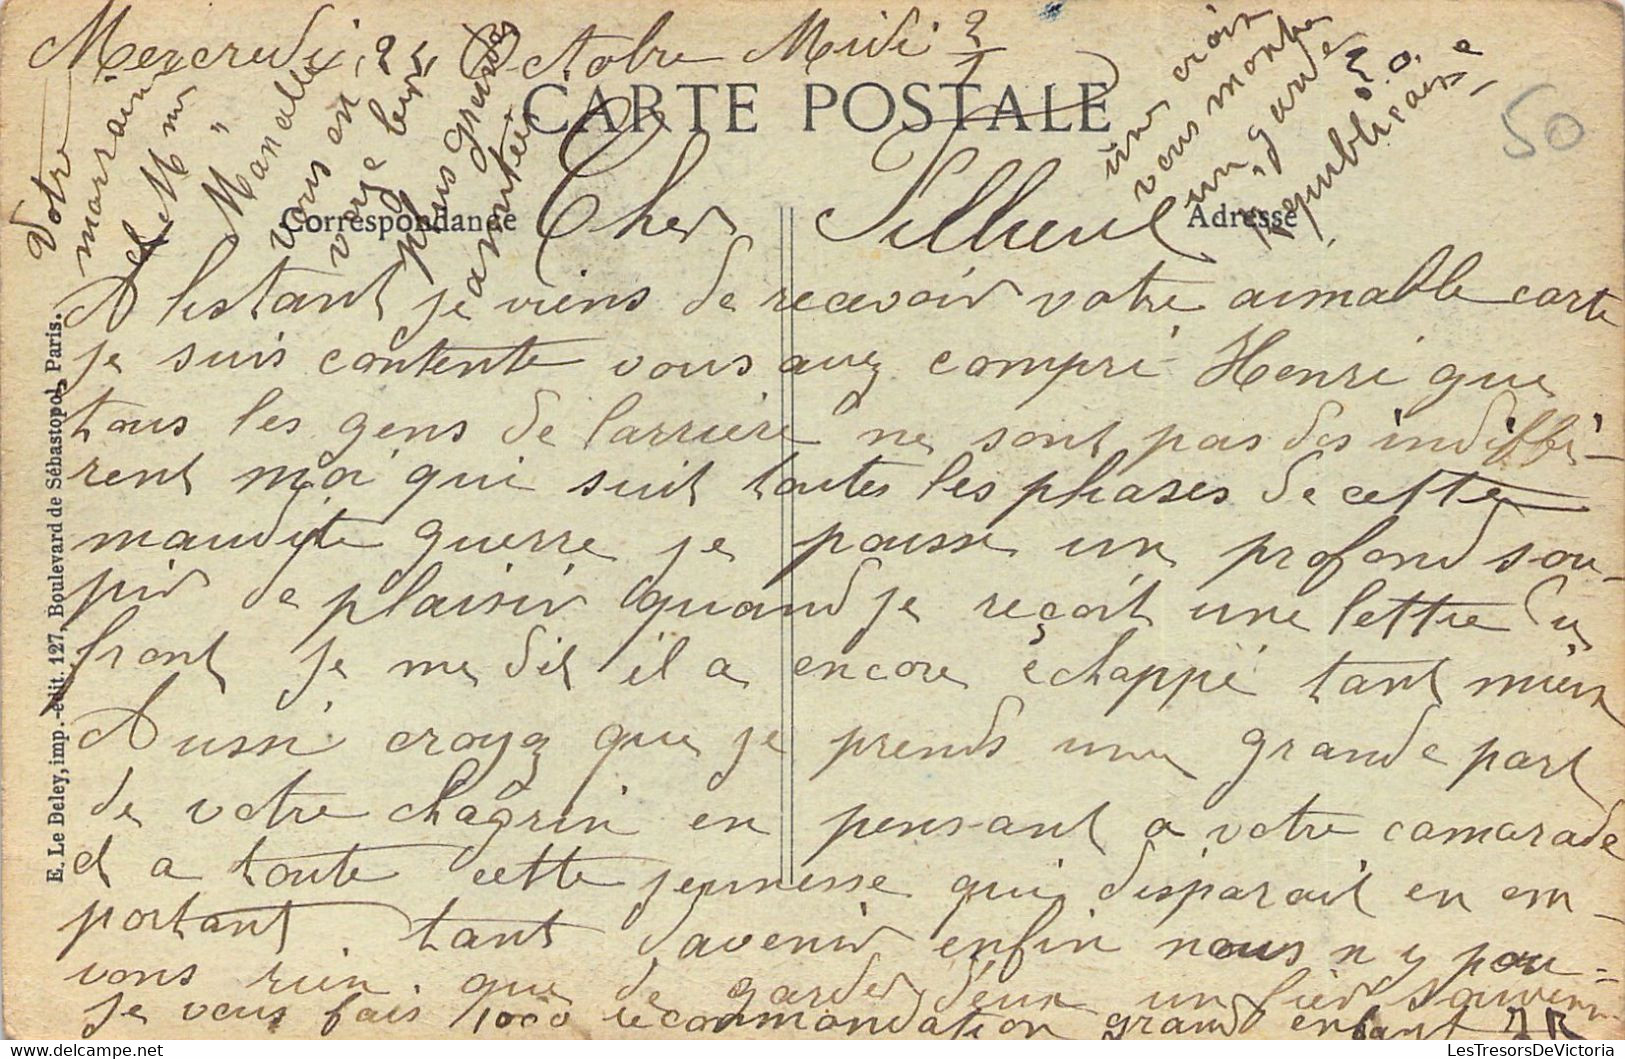 Mercredi, 25 Octobre Midi
CARTE POSTALE
50
Correspondance
Adresse
Cher Filleul
A listant je viens de recevoir votre aimable carte
je suis contente vous avez compri Henri que
tous les gens de larriere ne sont pas des indiffé-
rent moi qui suit toutes les phases de cette
maudite guerre je pousse un profond sou-
pir de plaisir quand je reçoit une lettre du
front je me dit il a encore échappé tant mieux
Aussi croyez que je prends une grande part
de votre chagrin en pensant a votre camarade
et a toute cette jeunesse qui disparait en em-
portant tant davenir enfin nous n y pou-
vons rien que de garder deux un fier souvenir
je vous fais 1000 recommandation grand enfant
Votre
marraine
et Mme
Manalle
vous en
voye leurs
plus grandes
amitiés
une croix
vous montre
un garde
republicaine
E. Le Deley, imp.-édit. 127, Boulevard de Sébastopol, Paris.
LesTresorsDeVictoria